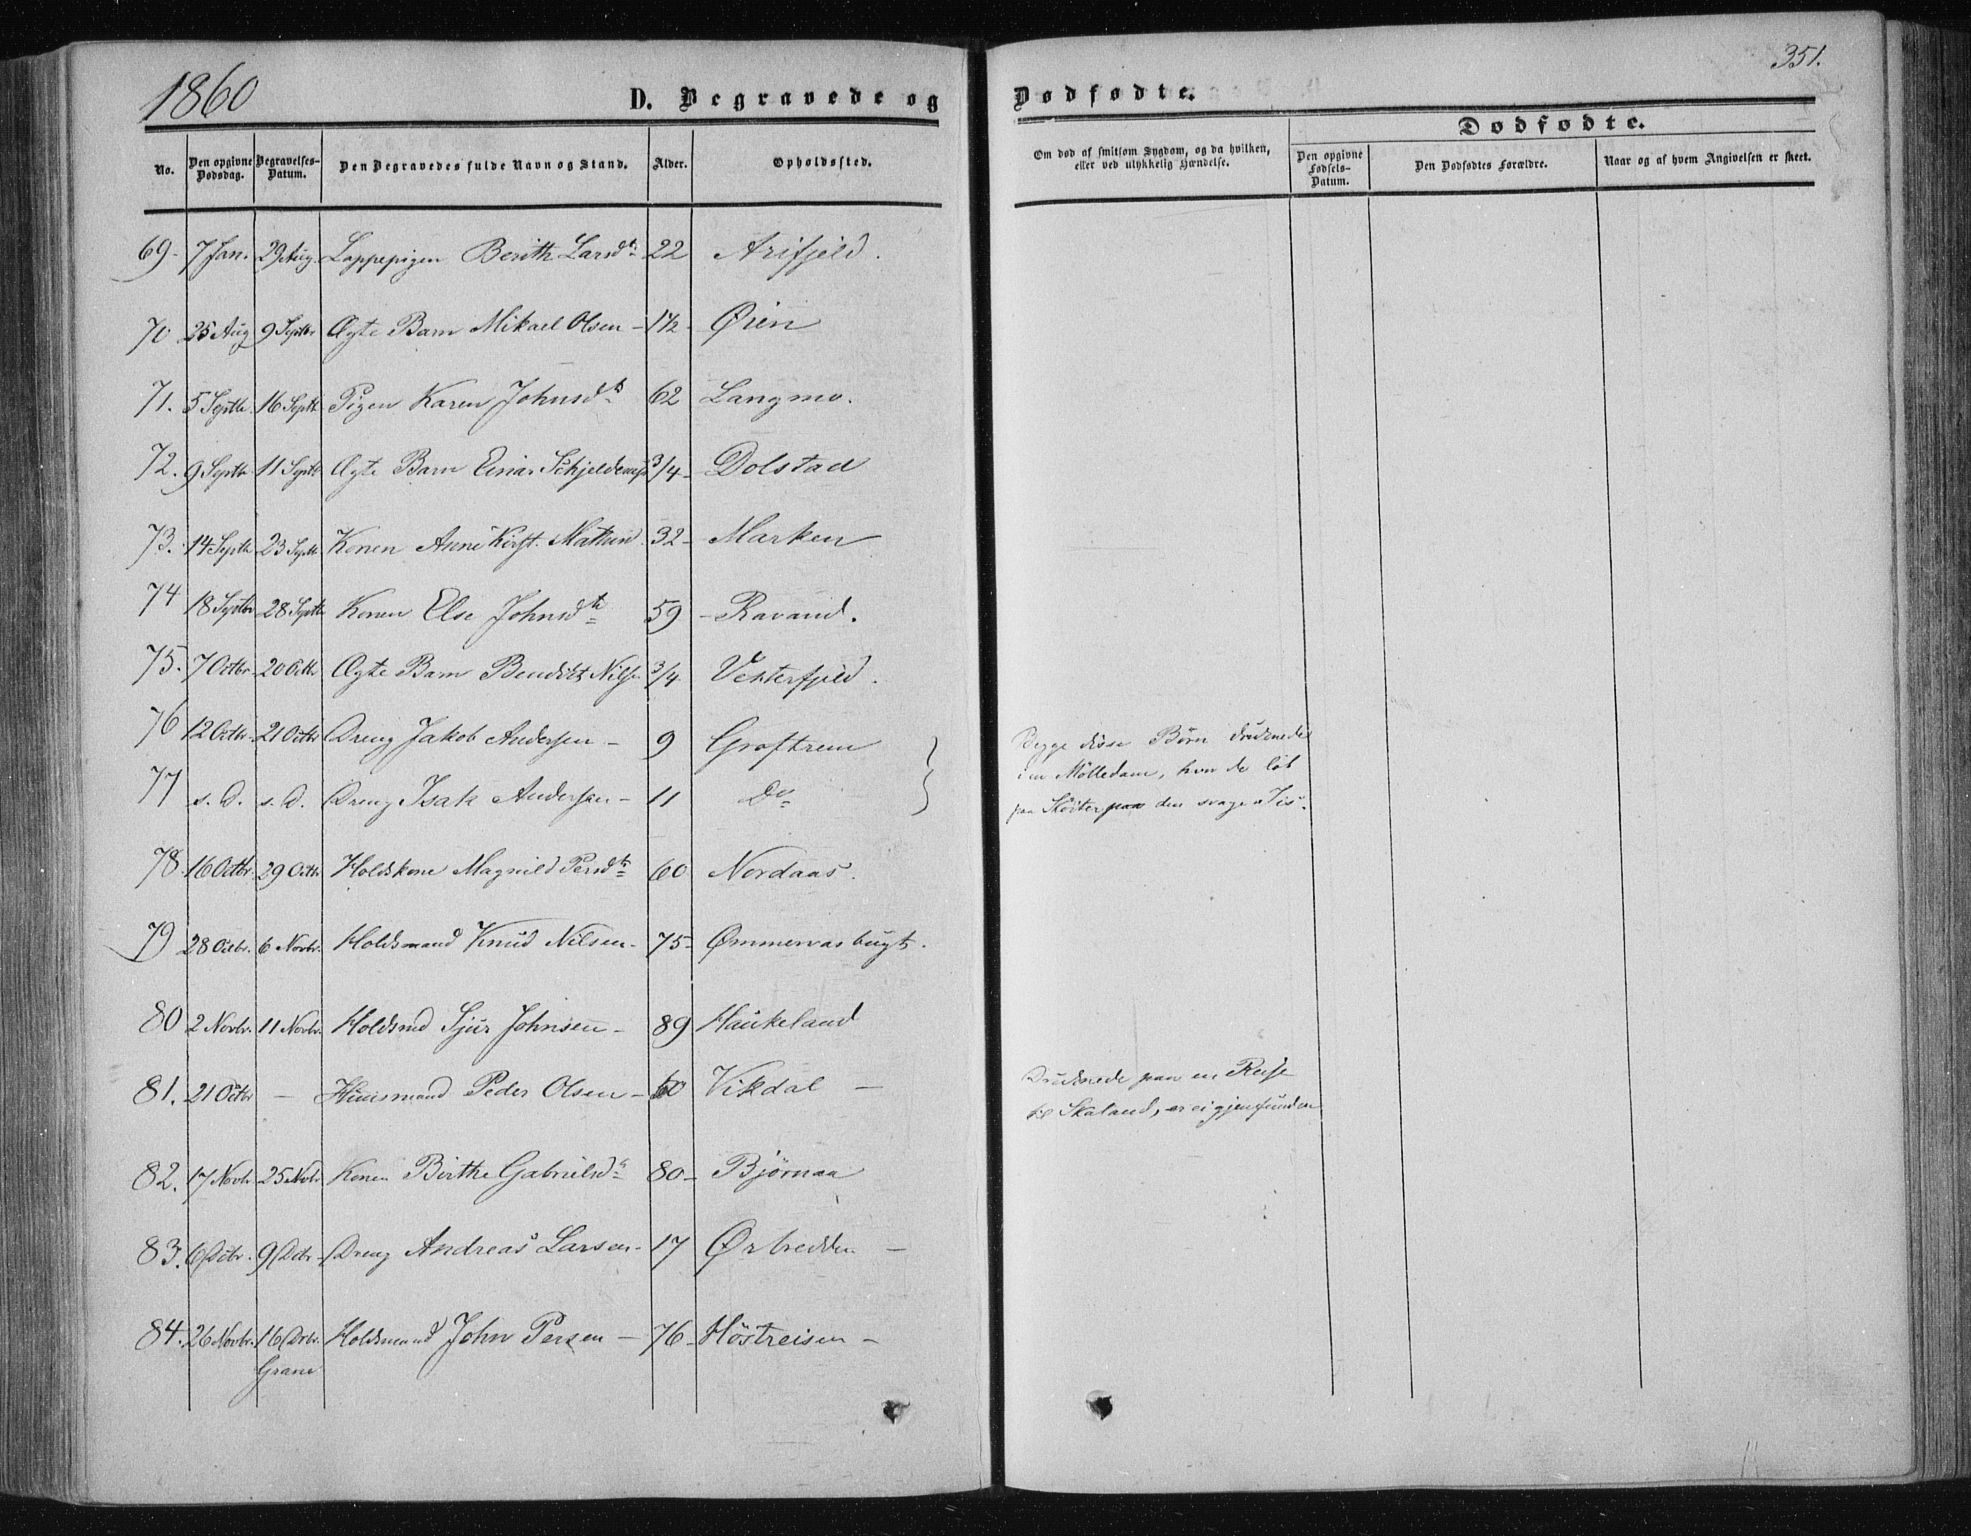 1860
351.
D. Begravede og Dødfødte.
Dødfødte.
No.
Den opgivne Dødsdag.
Begravelses-Datum.
Den Begravedes fulde Navn og Stand.
Alder.
Opholdssted.
Om død af smitsom Sygdom, og da hvilken, eller ved ulykkelig Hændelse.
Den opgivne Fødsels-Datum.
Den Dødfødtes Forældre.
Naar og af hvem Angivelsen er skeet.
69. 7 Jan. 29 Aug. Lappepigen Berith Larsdtr 22 Arifjeld.
70 25 Aug 9 Septbr Ægte Barn Mikael Olsen - 1½ - Øien
71. 5 Septbr. 16 Septbr Pigen Karen Johnsdtr 62 Langmo.
72. 9 Septbr 11 Septbr Ægte Barn Einar Schjelderup 3/4 - Dolstad
73. 14 Septbr 23 Septbr Konen Anne Kirst. Mathisd. 32 - Marken
74 18 Septbr 28 Septbr Konen Else Johnsdtr 59 - Ravand.
75. 7 Octbr. 20 Octbr Ægte Barn Bendikt Nilsen 3/4 Vesterfjeld.
76 12 Octbr. 21 Octbr Dreng Jakob Andersen - 9 Groftrem
77 s. D. s. D. Dreng Isak Andersen - 11 Do
Begge disse Børn druknede
i en Mølledam, hvor de løb
paa Skøiter paa den svage Iis.
78. 16 Octbr. 29 Octbr. Holdskone Magnild Persdtr 60 Nordaas.
79 28 Octbr. 6 Novbr. Holdsmand Knud Nilsen - 75 - Ømmervasbugt.
80 2 Novbr. 11 Novbr. Holdsmd Sjur Johnsen - 89 Haukeland
81. 21 Octbr - Huusmand Peder Olsen - 60 Vikdal -
Druknede paa en Reise
til Skaland, er ei gjenfunden
82. 17 Novbr. 25 Novbr. Konen Birthe Gabrielsdtr 80 - Bjørnaa
83. 6 Decbr. 9 Decbr - Dreng Andreas Larsen - 17 Ørbredden -
84. 26 Novbr. 16 Decbr. Holdsmand John Persen - 76 - Høstreisen -
Grane